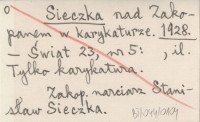 Sieczka nad Zako-
panem w karykaturze. 1928.
— Świat 23, nr 5: , il.
Tylko karykatura.
Zakop. narciarz Stani-
sław Sieczka.